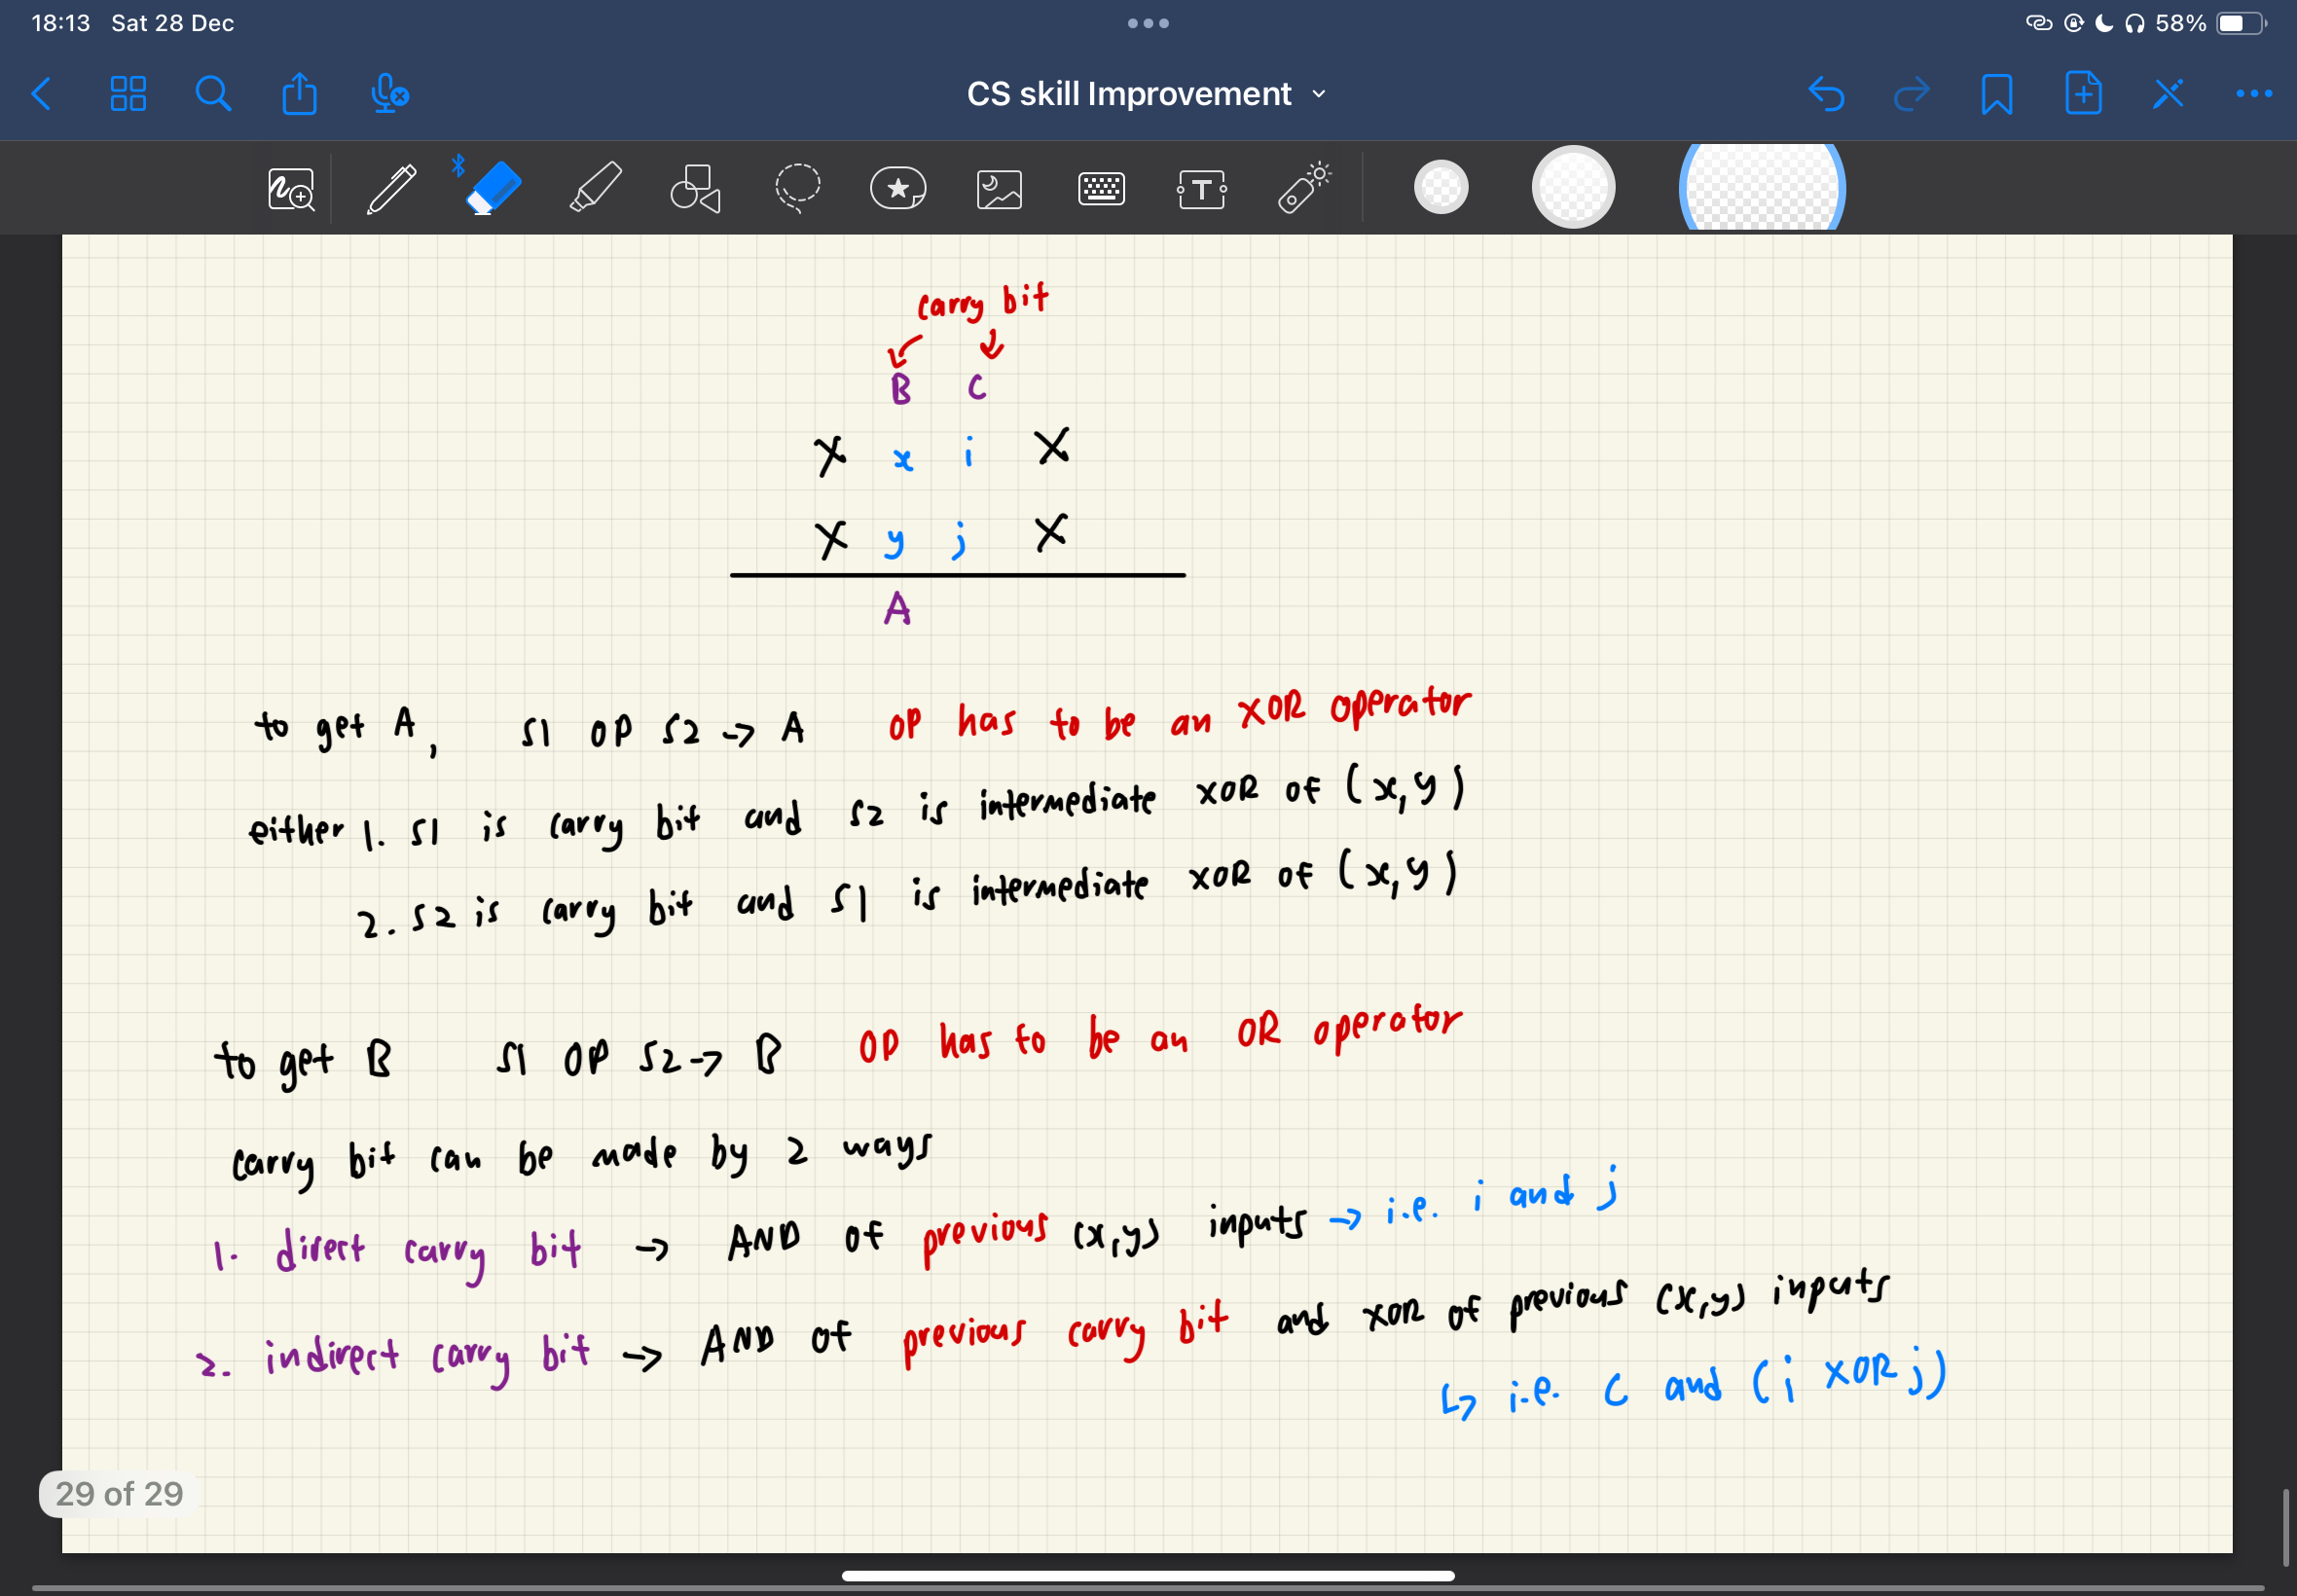 18:13 Sat 28 Dec 58%
CS skill Improvement
T
carry bit
B C
X x i X
X y j X
A
to get A, S1 OP S2 → A OP has to be an XOR operator
either 1. S1 is carry bit and S2 is intermediate XOR of (x,y)
2. S2 is carry bit and S1 is intermediate XOR of (x,y)
to get B S1 OP S2 → B OP has to be an OR operator
carry bit can be made by 2 ways
1. direct carry bit → AND of previous (x,y) inputs → i.e. i and j
2. indirect carry bit → AND of previous carry bit and XOR of previous (x,y) inputs
↳ i.e. C and (i XOR j)
29 of 29